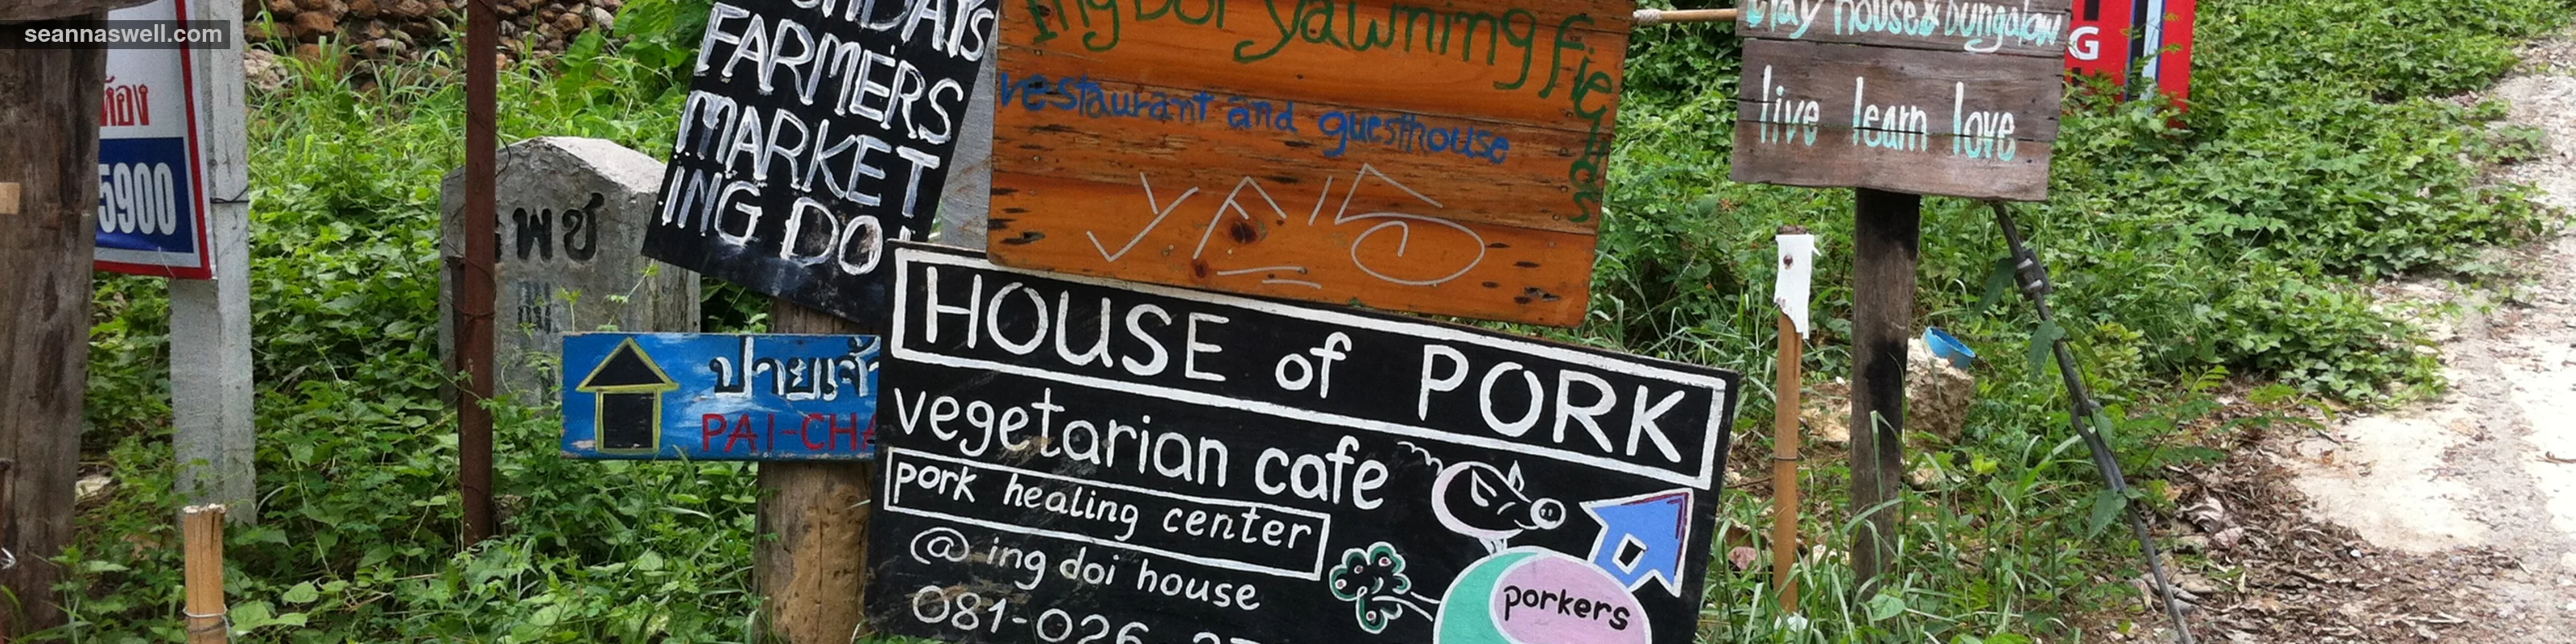 seannaswell.com
ห้อง
5900
พช
FARMERS
MARKET
ING DOI
ing Doi yawning fields
restaurant and guesthouse
clay house & bungalow
live learn love
G
PAI-CHA
HOUSE of PORK
vegetarian cafe
pork healing center
@ ing doi house
081-026
porkers